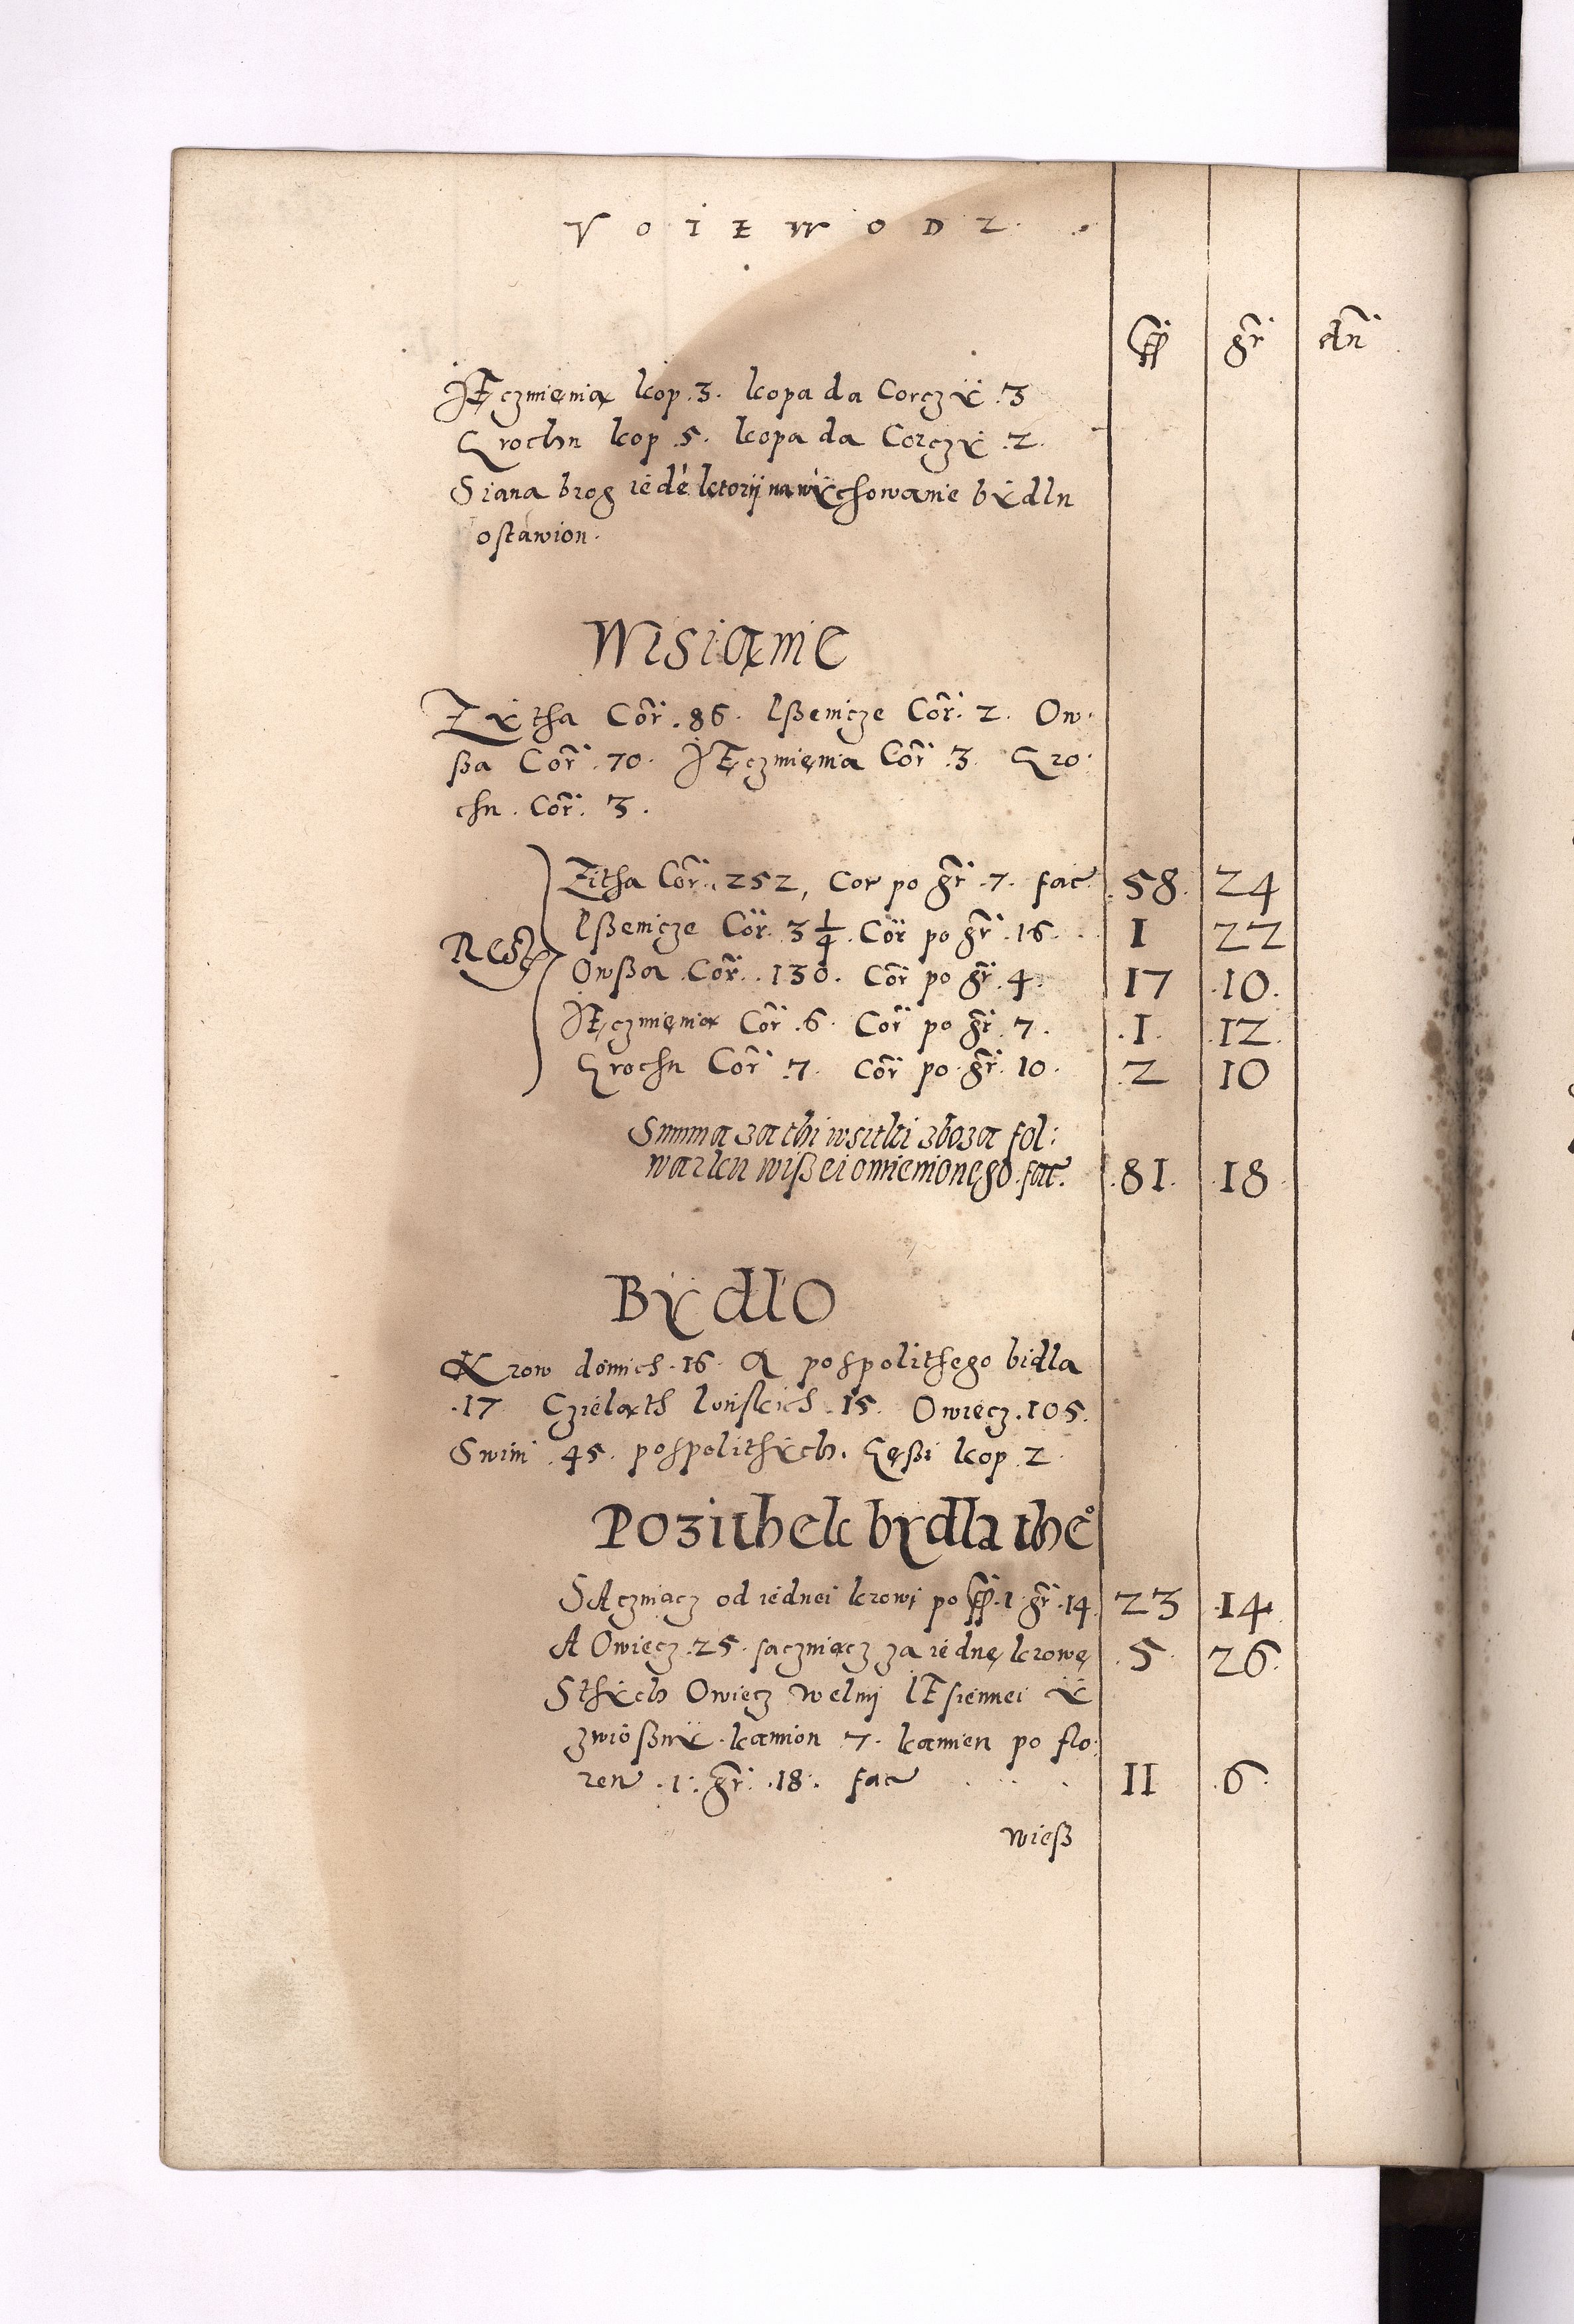 VOIEWODZ.
sex gr den
JEczmienia kop .3. kopa da Corczÿ .3
Grochu kop .5. kopa da Corczÿ .2.
Siana brog iedē ktorij na wÿchowanie bÿdlu
ostawion.
Wisianie
Zÿtha Cor̄. 86. Pßenicze Cor̄. 2. Ow-
ßa Cor̄. 70. JEczmienia Cor̄ .3. Gro-
chu. Cor̄. 3.
Zitha Cor̄. 252, Cor po gr̄ .7. fac 58. 24
Pßenicze Cor̄. 3 1/4. Cor̄ po gr̄ .16. 1 22
Rest
Owßa Cor̄. 130. Cor̄ po gr̄. 4. 17 .10.
JEczmienia Cor̄ .6. Cor̄ po gr̄ .7. .1. .12.
Grochu Cor̄ .7. Cor̄ po gr̄. 10. 2 10
Summa za thi wsitki zboza fol:
warku wißei omienionego. fac. .81. .18
Bÿdlo
Krow domich .16. A pospolithego bidla
.17 Czielath lonskich .15. Owiecz .105.
Swini .45. pospolithÿch. Gęßi kop 2.
Pozithek bÿdla theº
SAczuiacz od iednei krowi po sex .1. gr̄ .14. 23 .14.
A Owiecz .25. saczuiącz za iednę krowę .5. 26.
Sthÿch Owiecz welnij IEsiennei ÿ
zwioßnÿ. kamion 7. kamien po flo-
ren .1. gr̄. .18. fac 11 .6.
wieß